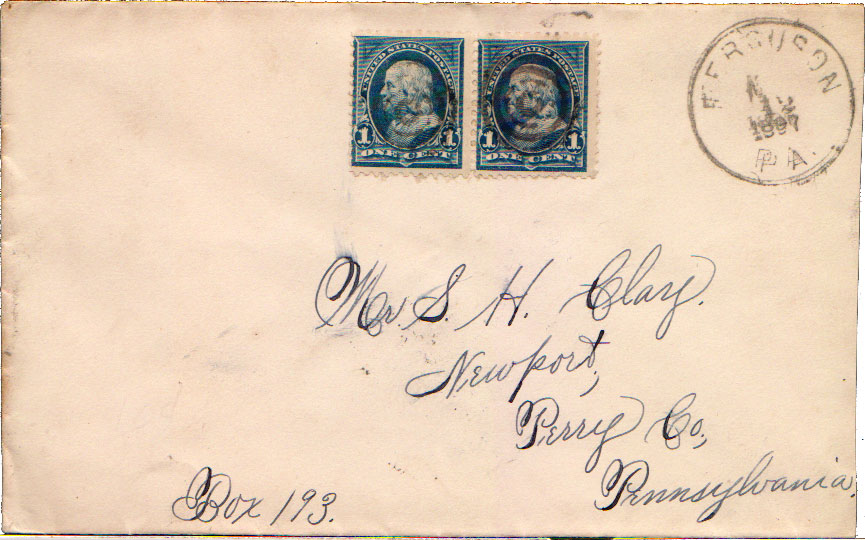 UNITED STATES POSTAGE
1 1
ONE CENT
UNITED STATES POSTAGE
1 1
ONE CENT
FERGUSON
12
1897
PA.
Mr. S. H. Clary.
Newport,
Perry Co,
Pennsylvania.
Box 193.